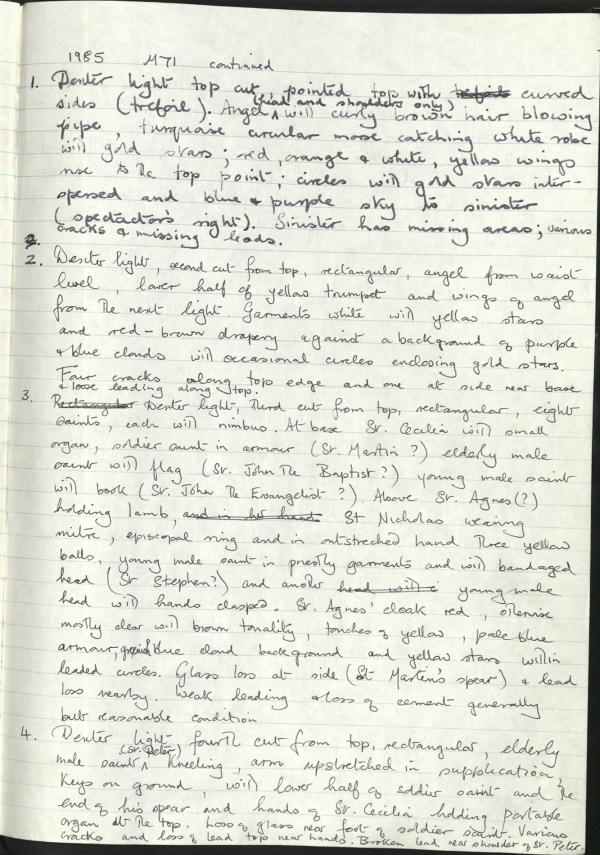 1985 M71 continued
1. Dexter light top cut, pointed top with trefoil curved
sides (trefoil). Angel (head and shoulders only) with curly brown hair blowing
pipe, turquoise circular morse catching white robe
with gold stars; red, orange & white, yellow wings
rise to the top point; circles with gold stars inter-
spersed and blue & purple sky to sinister
(spectator's right). Sinister has missing areas; various
cracks & missing leads.
2. Dexter light, second cut from top, rectangular, angel from waist
level, lower half of yellow trumpet and wings of angel
from the next light. Garments white with yellow stars
and red-brown drapery against a background of purple
& blue clouds with occasional circles enclosing gold stars.
Four cracks along top edge and one at side near base
& loose leading along top.
3. Rectangular Dexter light, third cut from top, rectangular, eight
saints, each with nimbus. At base St. Cecilia with small
organ, soldier saint in armour (St. Martin?) elderly male
saint with flag (St. John the Baptist?) young male saint
with book (St. John the Evangelist?). Above St. Agnes(?)
holding lamb, and in her hand St Nicholas wearing
mitre, episcopal ring and in outstreched hand three yellow
balls, young male saint in priestly garments and with bandaged
head (St Stephen?) and another head with c young male
head with hands clasped. St. Agnes' cloak red, otherwise
mostly clear with brown tonality, touches of yellow, pale blue
armour, greenish blue cloud background and yellow stars within
leaded circles. Glass loss at side (St Martin's spear) & lead
loss nearby. Weak leading & loss of cement generally
but reasonable condition
4. Dexter light fourth cut from top, rectangular, elderly
male saint (St. Peter) kneeling, arm upstretched in supplication,
Keys on ground, with lower half of soldier saint and the
end of his spear and hands of St. Cecilia holding portable
organ at the top. Loss of glass near foot of soldier saint. Various
cracks and loss of lead top near hands. Broken lead near shoulder of St. Peter.